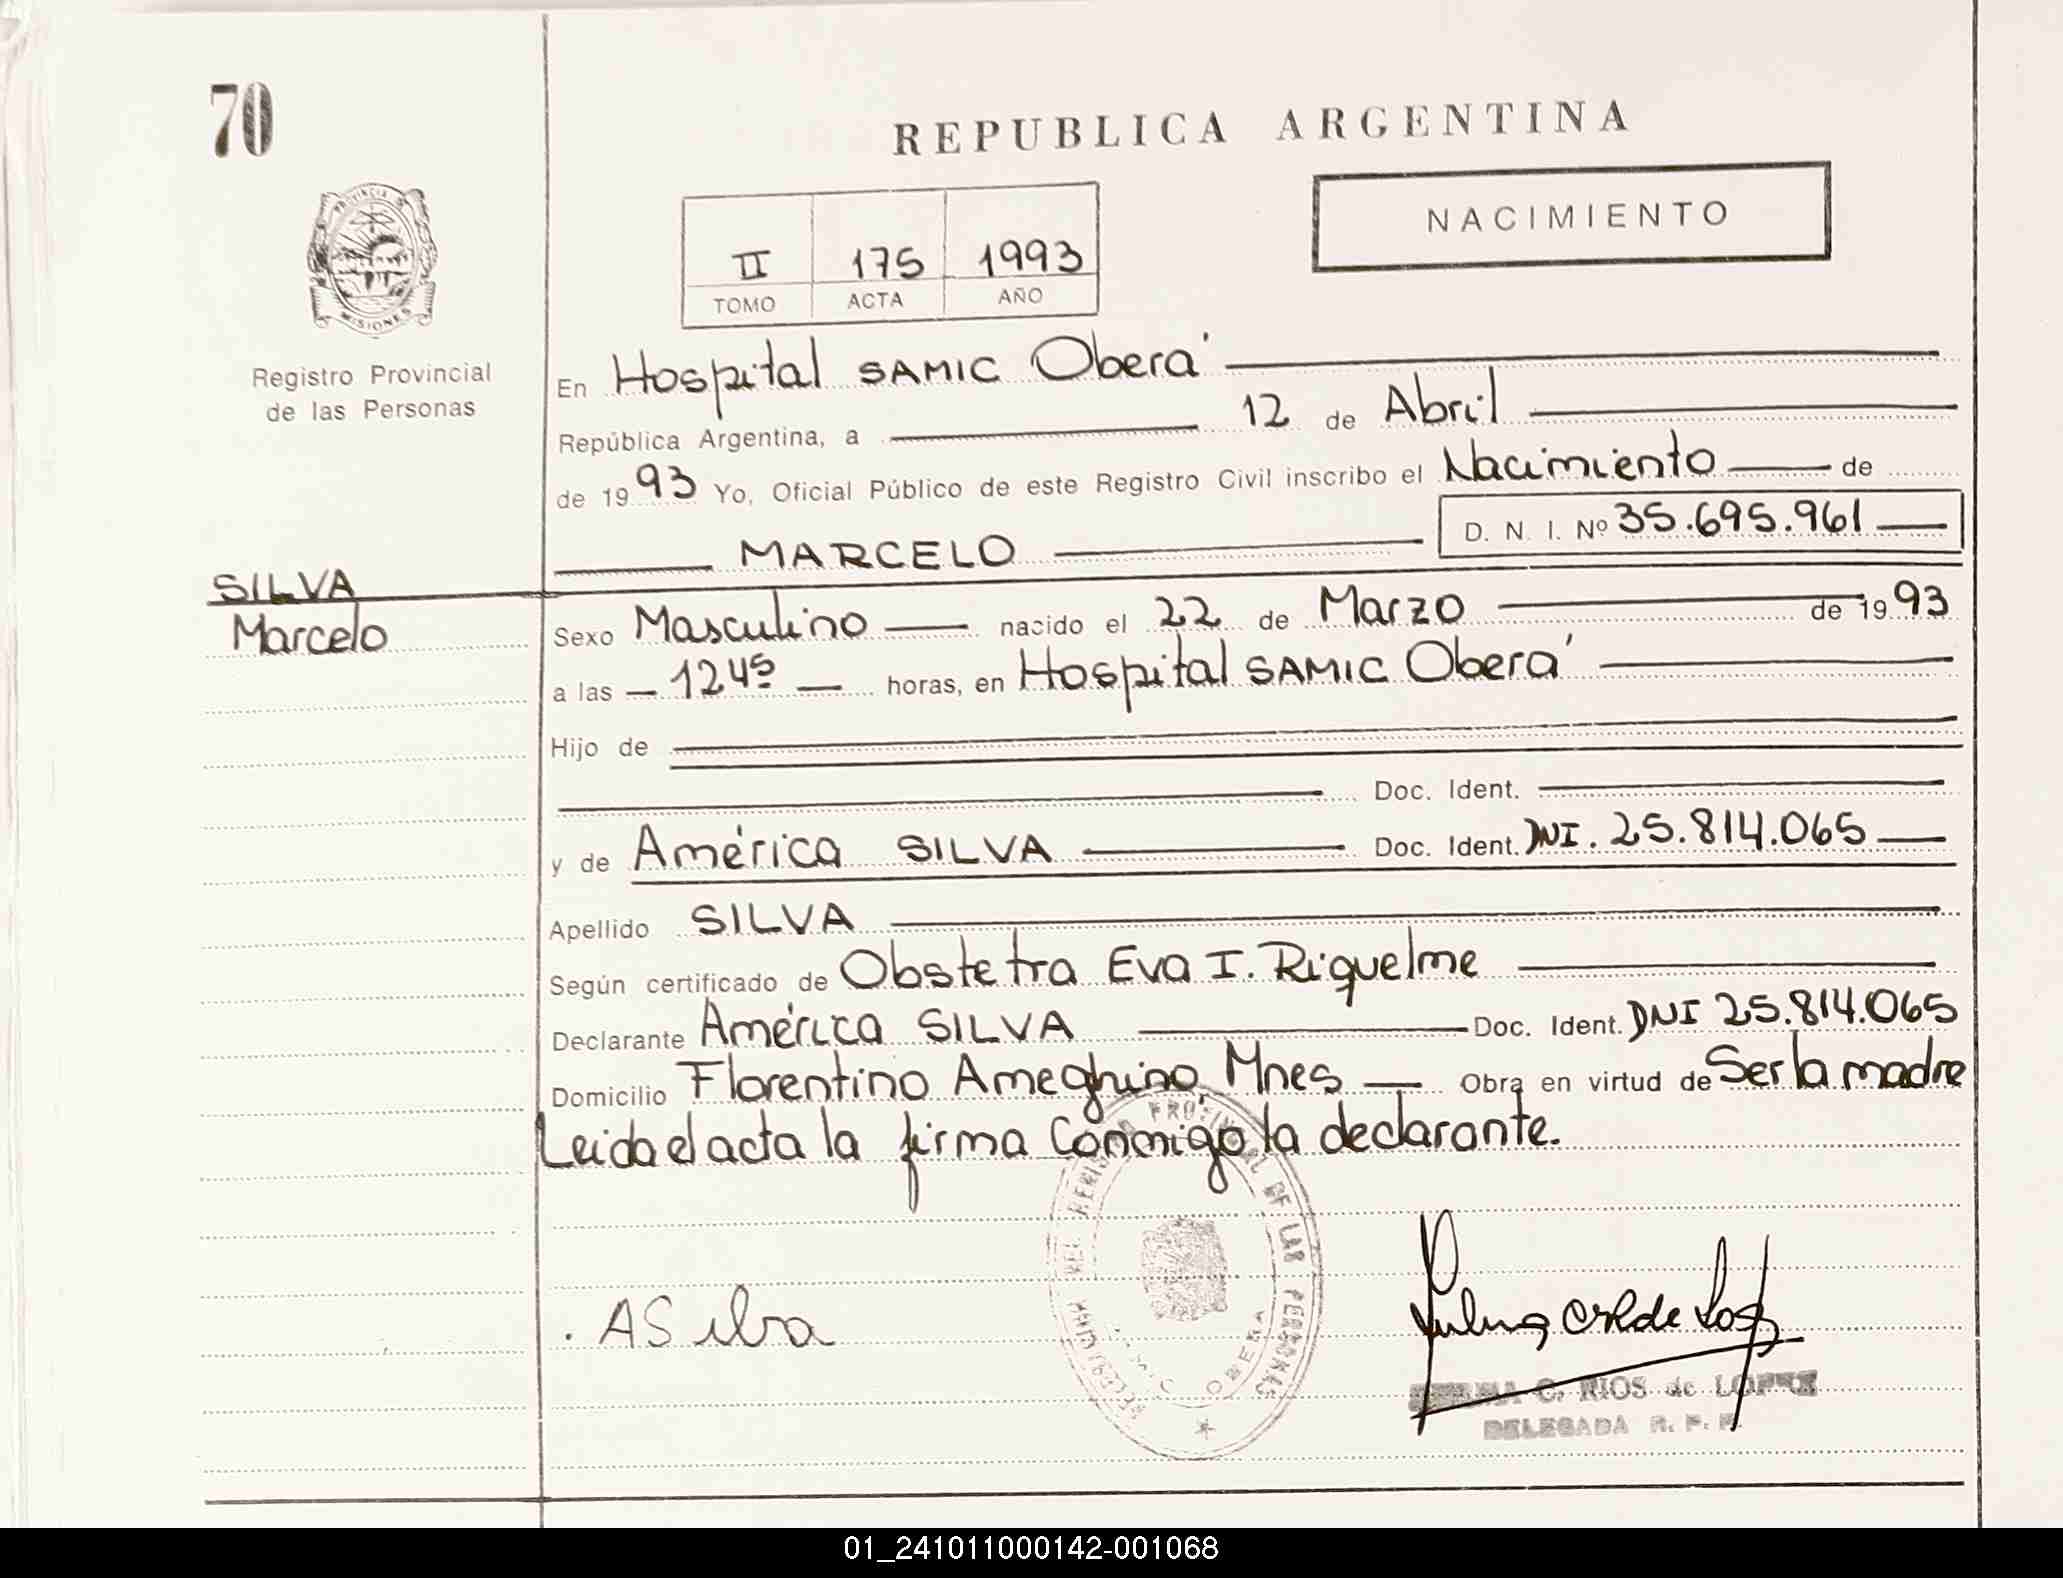 70
REPUBLICA ARGENTINA
NACIMIENTO
PROVINCIA DE
MISIONES
Registro Provincial
de las Personas
II 175 1993
TOMO ACTA AÑO
En Hospital SAMIC Oberá
República Argentina, a 12 de Abril
de 1993 Yo, Oficial Público de este Registro Civil inscribo el Nacimiento de
MARCELO D. N. I. Nº 35.695.961
SILVA
Marcelo
Sexo Masculino nacido el 22 de Marzo de 1993
a las 12 45 horas, en Hospital SAMIC Oberá
Hijo de
Doc. Ident.
y de América SILVA Doc. Ident. DNI. 25.814.065
Apellido SILVA
Según certificado de Obstetra Eva I. Riquelme
Declarante América SILVA Doc. Ident. DNI 25.814.065
Domicilio Florentino Ameghino, Mnes Obra en virtud de Ser la madre
Leida el acta la firma conmigo la declarante.
PROVINCIAL DE LAS PERSONAS
OBERA
ASilva
C. RIOS de LOPEZ
DELEGADA R. P. P.
01_241011000142-001068